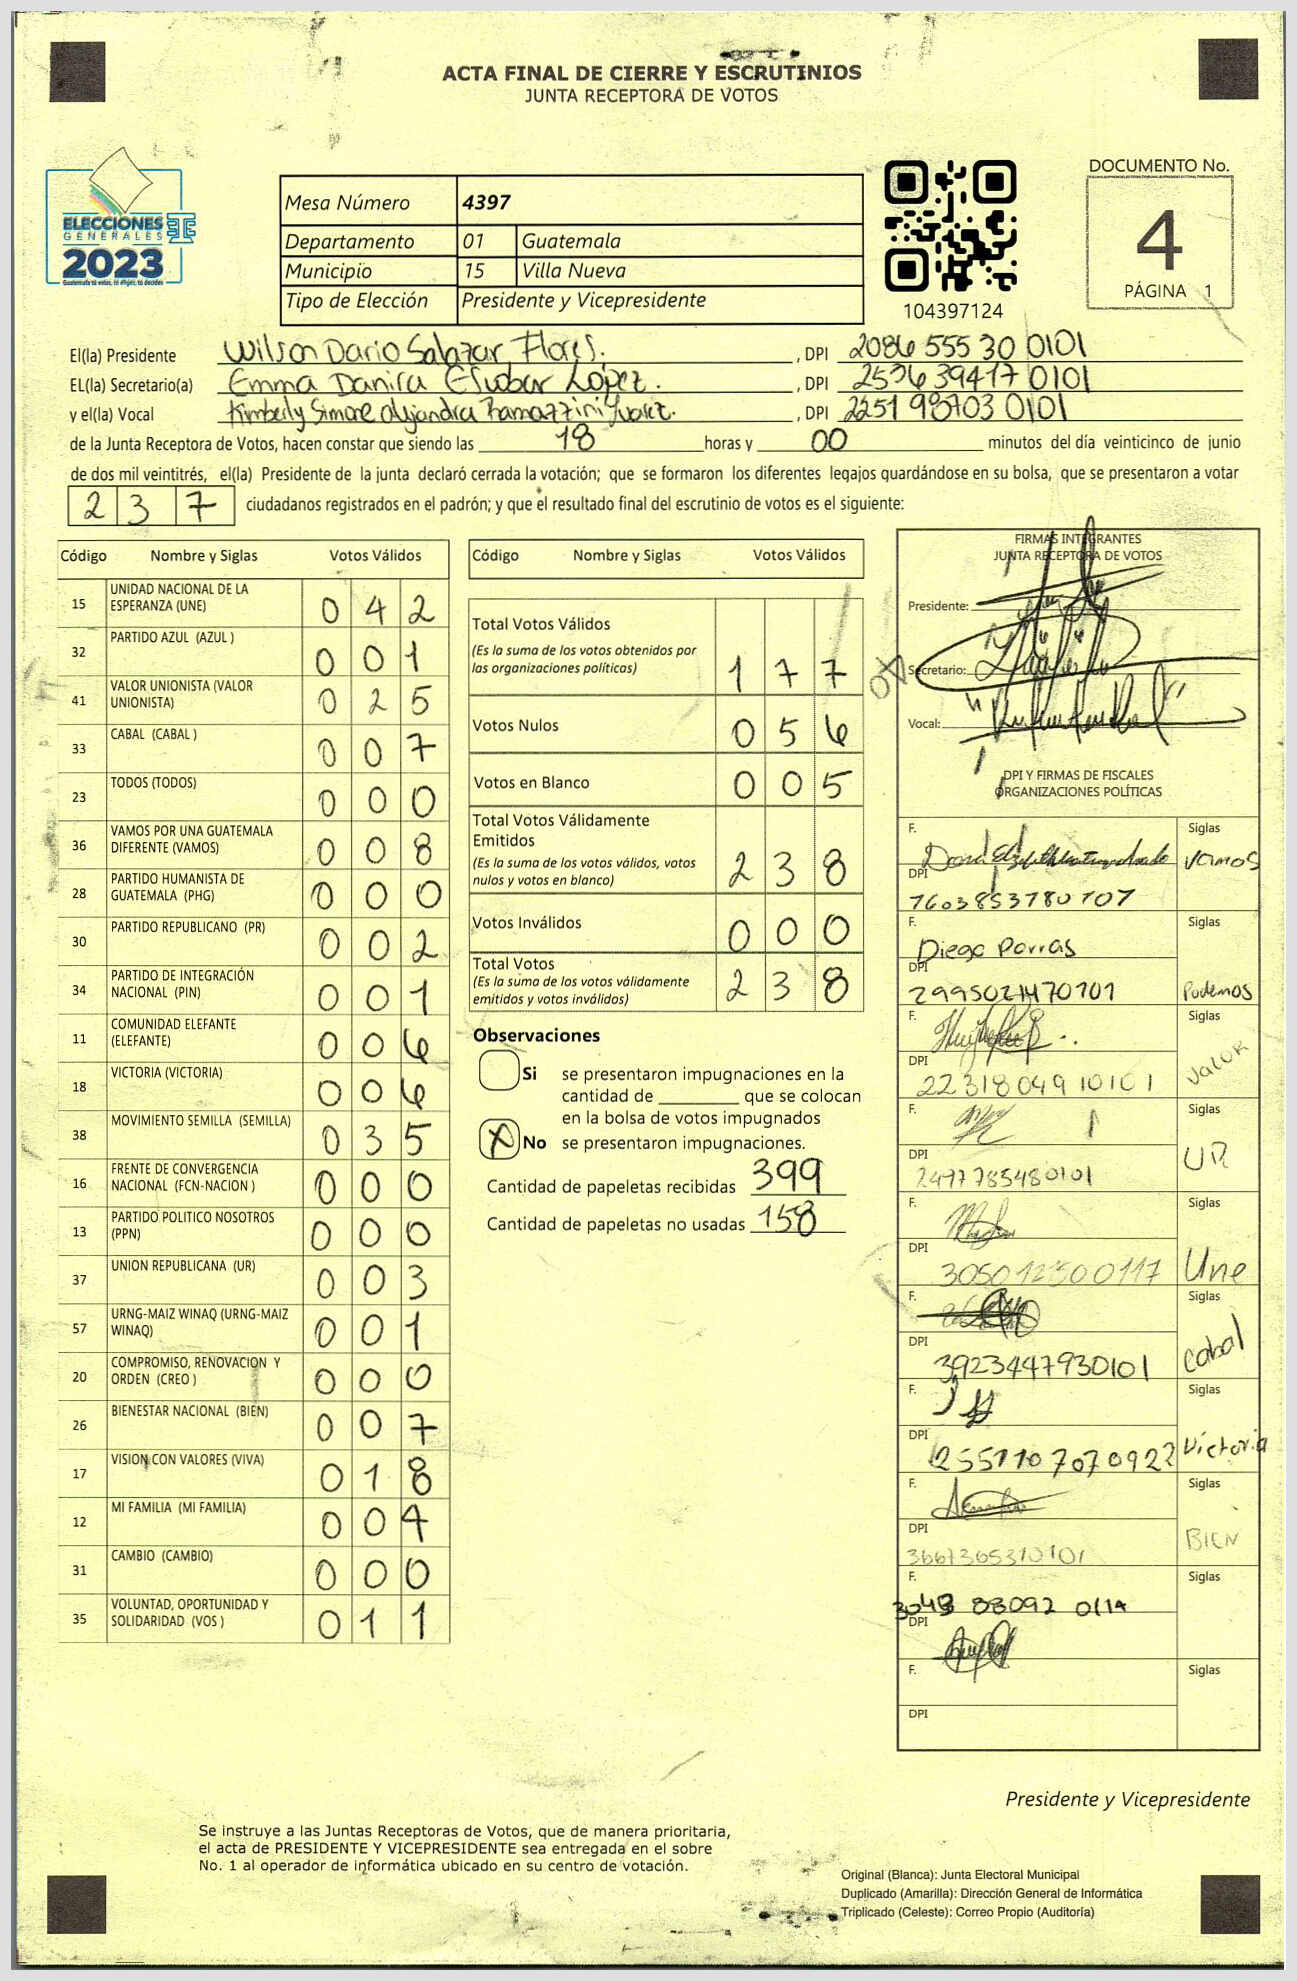 ACTA FINAL DE CIERRE Y ESCRUTINIOS
JUNTA RECEPTORA DE VOTOS
ELECCIONES
GENERALES
2023
Guatemala tú votas, tú eliges, tú decides
Mesa Número 4397
Departamento 01 Guatemala
Municipio 15 Villa Nueva
Tipo de Elección Presidente y Vicepresidente
104397124
DOCUMENTO No.
4
PÁGINA 1
El(la) Presidente Wilson Dario Salazar Flores. , DPI 2086 555 30 0101
EL(la) Secretario(a) Emma Danira Escobar López. , DPI 2536 39417 0101
y el(la) Vocal Kimberly Simone Alejandra Ramazzini , DPI 2251 98703 0101
de la Junta Receptora de Votos, hacen constar que siendo las 18 horas y 00 minutos del día veinticinco de junio
de dos mil veintitrés, el(la) Presidente de la junta declaró cerrada la votación; que se formaron los diferentes legajos guardándose en su bolsa, que se presentaron a votar
2 3 7 ciudadanos registrados en el padrón; y que el resultado final del escrutinio de votos es el siguiente:
Código Nombre y Siglas Votos Válidos
15 UNIDAD NACIONAL DE LA
ESPERANZA (UNE) 0 4 2
32 PARTIDO AZUL (AZUL ) 0 0 1
41 VALOR UNIONISTA (VALOR
UNIONISTA) 0 2 5
33 CABAL (CABAL ) 0 0 7
23 TODOS (TODOS) 0 0 0
36 VAMOS POR UNA GUATEMALA
DIFERENTE (VAMOS) 0 0 8
28 PARTIDO HUMANISTA DE
GUATEMALA (PHG) 0 0 0
30 PARTIDO REPUBLICANO (PR) 0 0 2
34 PARTIDO DE INTEGRACIÓN
NACIONAL (PIN) 0 0 1
11 COMUNIDAD ELEFANTE
(ELEFANTE) 0 0 6
18 VICTORIA (VICTORIA) 0 0 6
38 MOVIMIENTO SEMILLA (SEMILLA) 0 3 5
16 FRENTE DE CONVERGENCIA
NACIONAL (FCN-NACION ) 0 0 0
13 PARTIDO POLITICO NOSOTROS
(PPN) 0 0 0
37 UNION REPUBLICANA (UR) 0 0 3
57 URNG-MAIZ WINAQ (URNG-MAIZ
WINAQ) 0 0 1
20 COMPROMISO, RENOVACION Y
ORDEN (CREO ) 0 0 0
26 BIENESTAR NACIONAL (BIEN) 0 0 7
17 VISION CON VALORES (VIVA) 0 1 8
12 MI FAMILIA (MI FAMILIA) 0 0 4
31 CAMBIO (CAMBIO) 0 0 0
35 VOLUNTAD, OPORTUNIDAD Y
SOLIDARIDAD (VOS ) 0 1 1
Código Nombre y Siglas Votos Válidos
Total Votos Válidos
(Es la suma de los votos obtenidos por
las organizaciones políticas) 1 7 7
Votos Nulos 0 5 6
Votos en Blanco 0 0 5
Total Votos Válidamente
Emitidos
(Es la suma de los votos válidos, votos
nulos y votos en blanco) 2 3 8
Votos Inválidos 0 0 0
Total Votos
(Es la suma de los votos válidamente
emitidos y votos inválidos) 2 3 8
Observaciones
Si se presentaron impugnaciones en la
cantidad de ________ que se colocan
en la bolsa de votos impugnados
X No se presentaron impugnaciones.
Cantidad de papeletas recibidas 399
Cantidad de papeletas no usadas 158
FIRMAS INTEGRANTES
JUNTA RECEPTORA DE VOTOS
Presidente:
Secretario:
Vocal:
DPI Y FIRMAS DE FISCALES
ORGANIZACIONES POLÍTICAS
F. Siglas
Vamos
DPI
1603853780707
F. Siglas
Diego Porras
DPI
2995021470101 Podemos
F. Siglas
DPI Valor
2231804910101
F. Siglas
DPI UR
2497785480101
F. Siglas
DPI Une
3050123000117
F. Siglas
DPI Cabal
3923447930101
F. Siglas
DPI Victoria
2551107070922
F. Siglas
DPI BIEN
3667365310101
F. Siglas
3048 83092 0114
DPI
F. Siglas
DPI
Presidente y Vicepresidente
Se instruye a las Juntas Receptoras de Votos, que de manera prioritaria,
el acta de PRESIDENTE Y VICEPRESIDENTE sea entregada en el sobre
No. 1 al operador de informática ubicado en su centro de votación.
Original (Blanca): Junta Electoral Municipal
Duplicado (Amarilla): Dirección General de Informática
Triplicado (Celeste): Correo Propio (Auditoría)